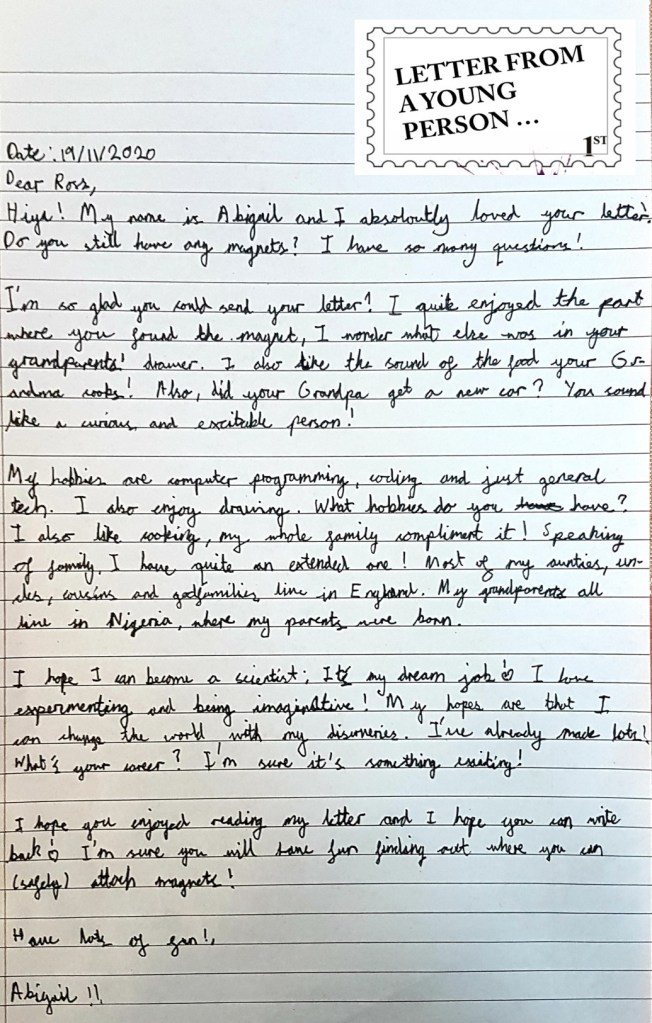 LETTER FROM
A YOUNG
PERSON ...
1ST
Date: 19/11/2020
Dear Ross,
Hiya! My name is Abigail and I absoloutly loved your letter.
Do you still have any magnets? I have so many questions!
I'm so glad you could send your letter! I quite enjoyed the part
where you found the magnet, I wonder what else was in your
grandparents' drawer. I also like the sound of the food your Gr-
andma cooks! Also, did your Grandpa get a new car? You sound
like a curious and excitable person!
My hobbies are computer programming, coding and just general
tech. I also enjoy drawing. What hobbies do you have?
I also like cooking, my whole family compliment it! Speaking
of family, I have quite an extended one! Most of my aunties, un-
cles, cousins and godfamilies live in England. My grandparents all
live in Nigeria, where my parents were born.
I hope I can become a scientist; It's my dream job! I love
expermenting and being imaginative! My hopes are that I
can change the world with my discoveries. I've already made lots!
What's your career? I'm sure it's something exciting!
I hope you enjoyed reading my letter and I hope you can write
back! I'm sure you will have fun finding out where you can
(safely) attach magnets!
Have lots of fun!,
Abigail !!